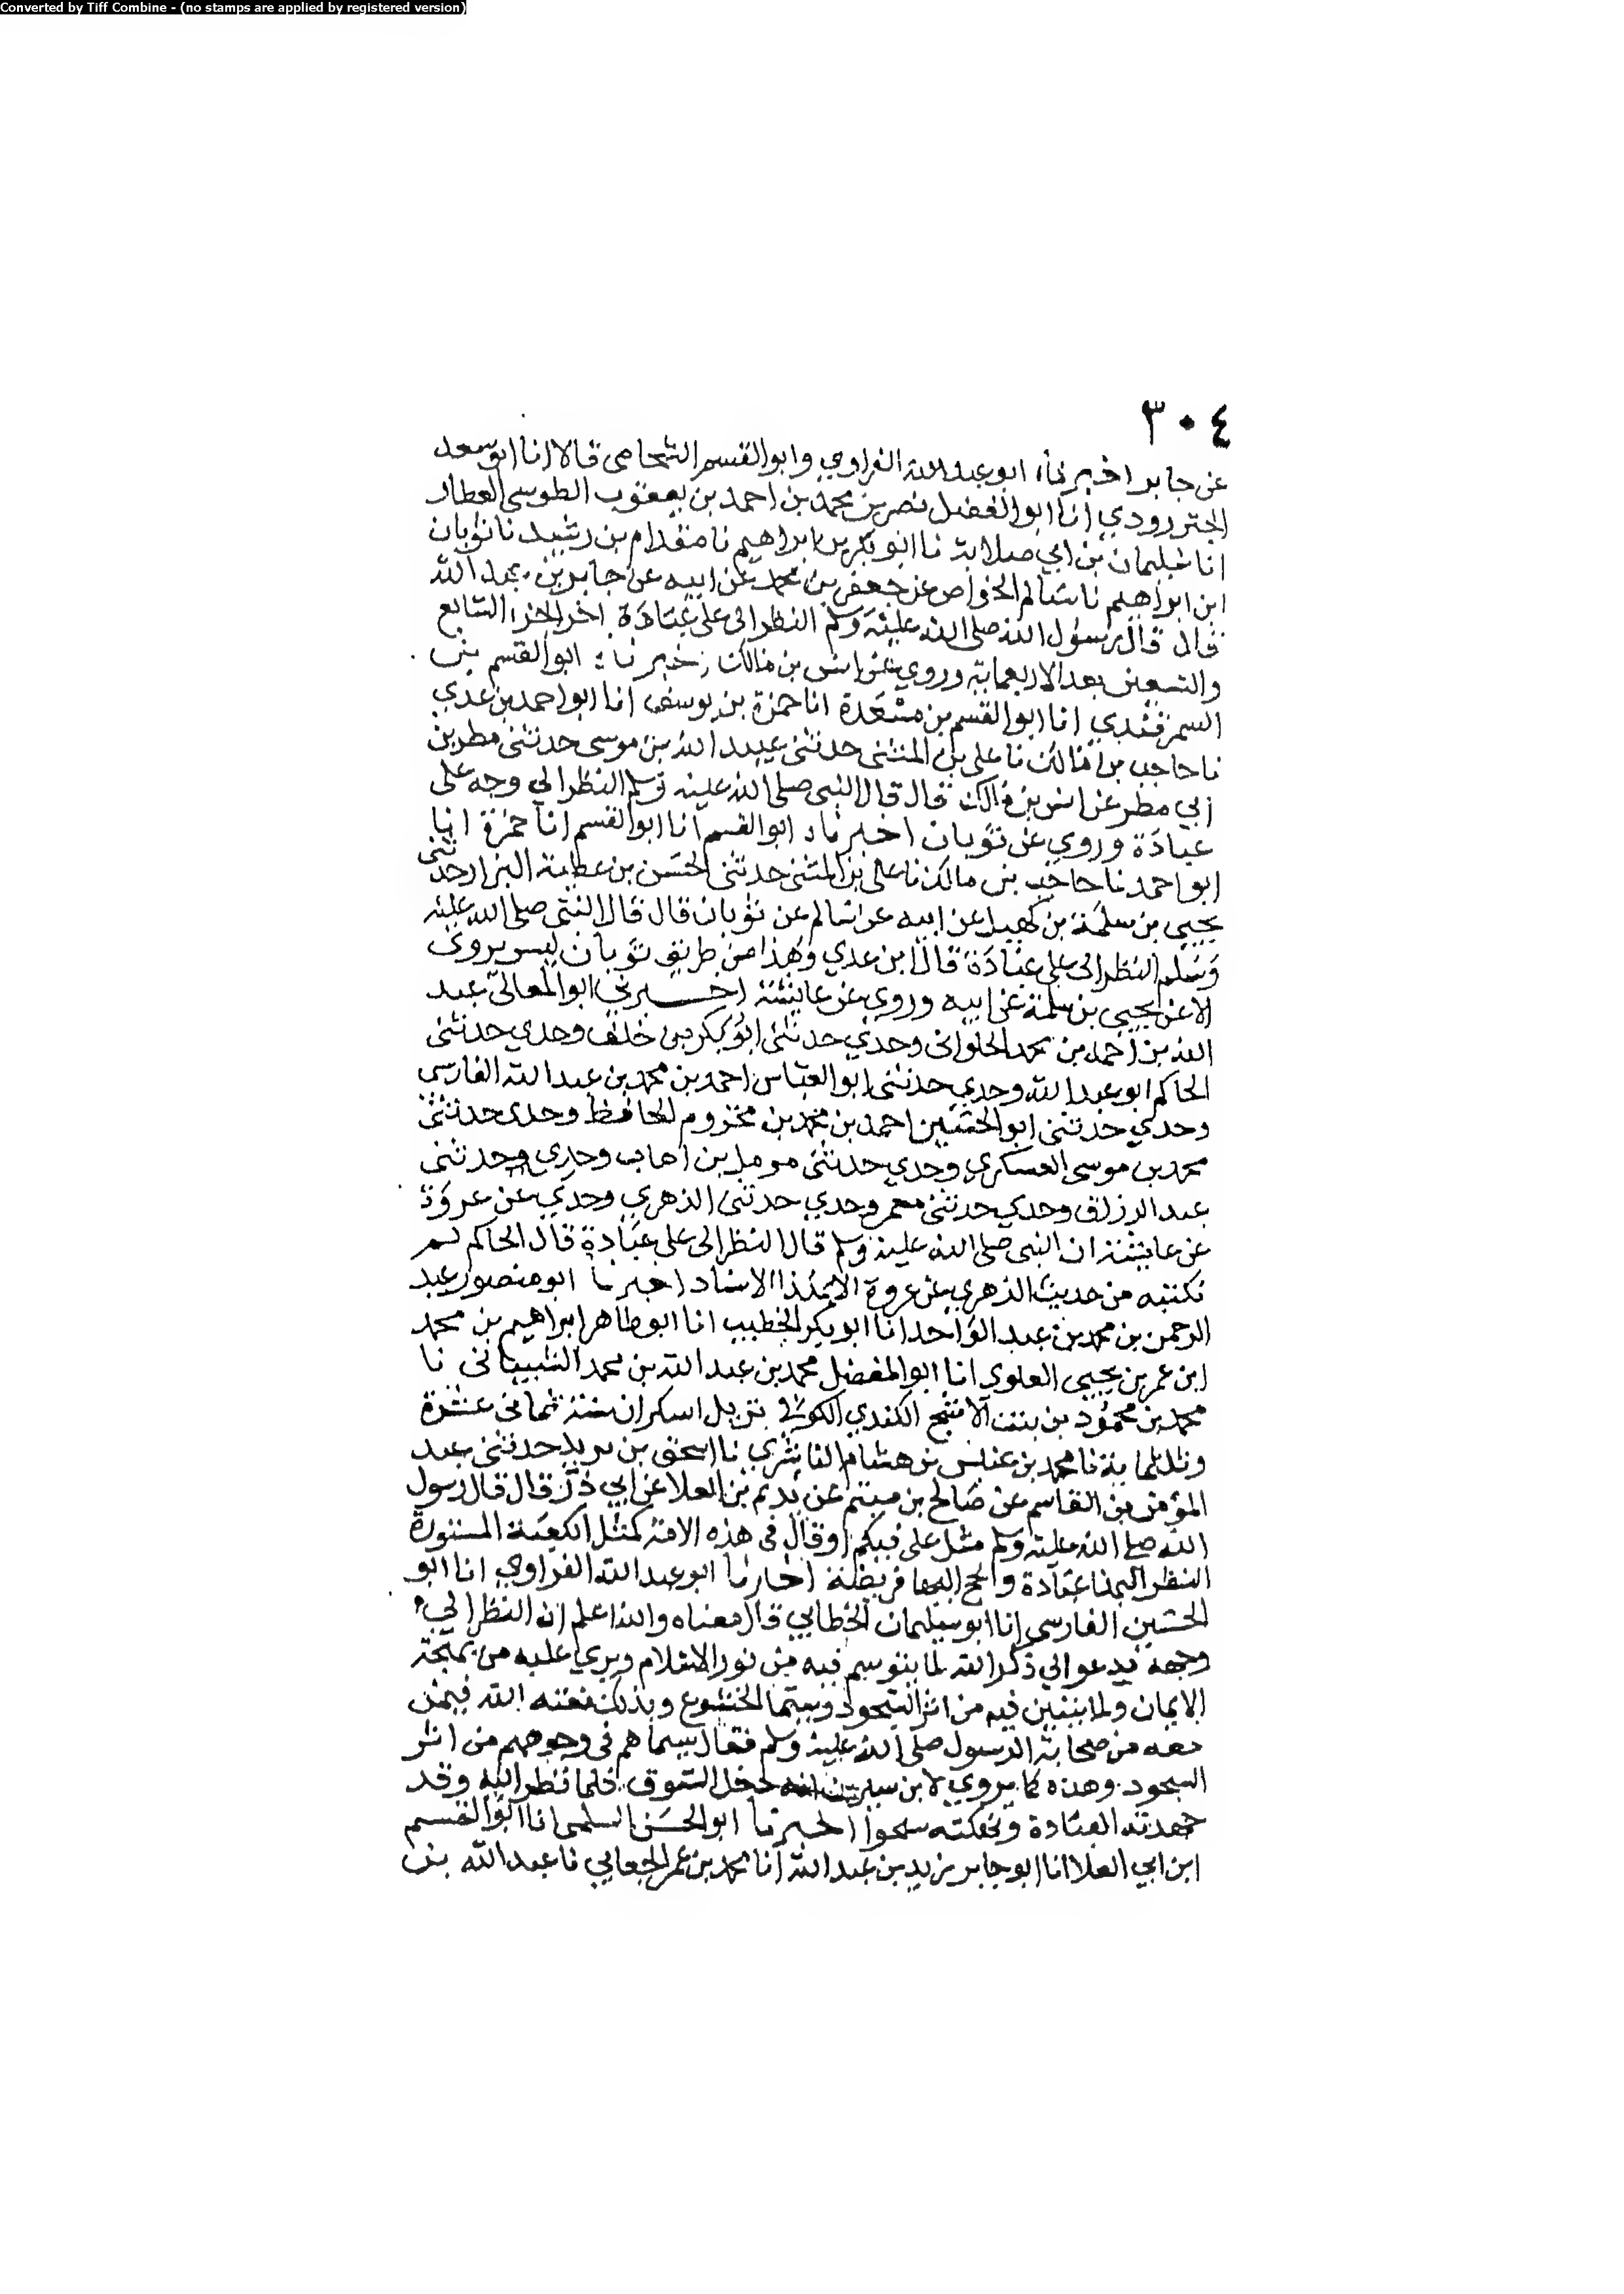 Converted by Tiff Combine - (no stamps are applied by registered version)
٣٠٤
عن جابر اخبرنا ابو عبد الله الفراوي وابو القسم الشحامي قالا انا ابو سعد
الجنزرودي انا ابو الفضل نصر بن محمد بن احمد بن يعقوب الطوسي العطار
انا سليمان بن ابي صلابة نا ابو بكر بن ابراهيم نا مقدام بن رشيد نا ثوبان
ابن ابراهيم نا سالم الخواص عن جعفر بن محمد عن ابيه عن جابر بن عبد الله
قال قال رسول الله صلى الله عليه وسلم النظر الى علي عبادة اخر الجزء السابع
والتسعين بعد الاربعماية وروي عن انس بن مالك اخبرنا ابو القسم بن
السمرقندي انا ابو القسم بن مسعدة انا حمزة بن يوسف انا ابو احمد بن عدي
نا حاجب بن مالك نا علي بن المثنى حدثني عبيد الله بن موسى حدثني مطر بن
ابي مطر عن انس بن مالك قال قال النبي صلى الله عليه وسلم النظر الي وجه علي
عبادة وروي عن ثوبان اخبرنا ابو القسم انا ابو القسم انا حمزة انا
ابو احمد نا حاجب بن مالك نا علي بن المثنى حدثني الحسن بن عطية البزار حدثني
يحيى بن سلمة بن كهيل عن ابيه عن سالم عن ثوبان قال قال النبي صلى الله عليه
وسلم النظر الى علي عبادة قال ابن عدي وهذا من طريق ثوبان ليس يروى
الا عن يحيى بن سلمة عن ابيه وروي عن عايشة اخبرني ابو المعالي عبد
الله بن احمد بن محمد الحلواني وحدي حدثني ابو بكر بن خلف وحدي حدثني
الحاكم ابو عبد الله وحدي حدثني ابو العباس احمد بن محمد بن عبد الله الفارسي
وحدي حدثني ابو الحسين احمد بن محمد بن مخزوم الحافظ وحدى حدثني
محمد بن موسى العسكري وحدي حدثني مومل بن اهاب وحدي وحدثني
عبد الرزاق وحدي حدثني معمر وحدي حدثني الزهري وحدي عن عروة
عن عايشة ان النبي صلى الله عليه وسلم قال النظر الى علي عبادة قال الحاكم لم
نكتبه من حديث الزهري عن عروة الا بهذا الاسناد اخبرنا ابو منصور عبد
الرحمن بن محمد بن عبد الواحد انا ابو بكر الخطيب انا ابو طاهر ابراهيم بن محمد
ابن عمر بن يحيى العلوي انا ابو المفضل محمد بن عبد الله بن محمد الشيباني نا
محمد بن محمود بن بنت الاشج الكندي الكوفي نزيل اسكران سنة ثماني عشرة
وثلثماية نا محمد بن عنبس بن هشام الناشري نا اسحق بن يريد حدثني عبد
المؤمن بن القاسم عن صالح بن ميثم عن يريم بن العلا عن ابي ذر قال قال رسول
الله صلى الله عليه وسلم مثل علي فيكم او قال في هذه الامة كمثل الكعبة المستورة
النظر اليها عبادة والحج اليها فريضة اخبرنا ابو عبد الله الفراوي انا ابو
الحسين الفارسي انا ابو سليمان الخطابي قال معناه والله اعلم ان النظر الي
وجهه يدعو الي ذكر الله لما يتوسم فيه من نور الاسلام ويري عليه من بهجة
الايمان ولما يتبين فيه من اثر السجود وسيما الخشوع وبذلك نعته الله فيمن
معه من صحابة الرسول صلى الله عليه وسلم فقال سيماهم في وجوههم من اثر
السجود وهذه كما يروي لابن سيرين انه دخل السوق فلما نظر اليه وقد
جهدته العبادة ونهكته سبحوا اخبرنا ابو الحسن السلمى انا ابو القسم
ابن ابي العلا انا ابو جابر يزيد بن عبد الله انا محمد بن عمر الجعابي نا عبد الله بن